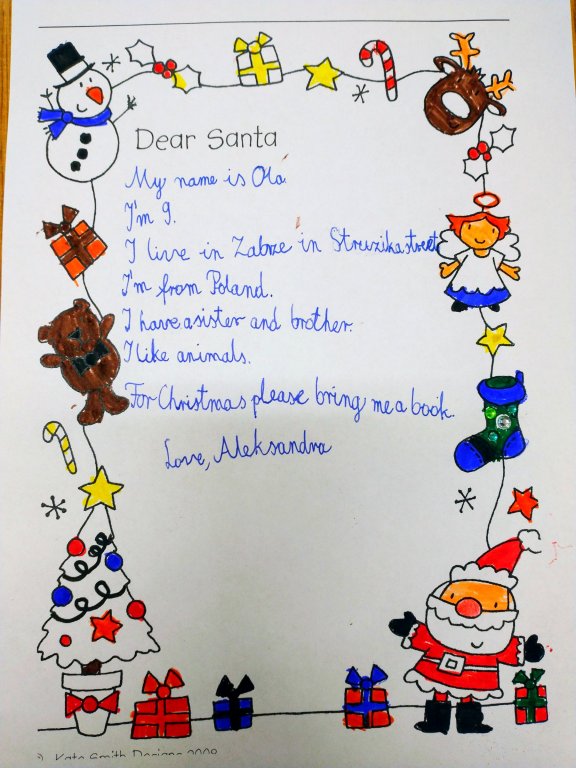 Dear Santa
My name is Ola.
I'm 9.
I live in Zabrze in Struzika street
I'm from Poland.
I have a sister and brother.
I like animals.
For Christmas please bring me a book.
Love, Aleksandra
Kate Smith Designs 2008